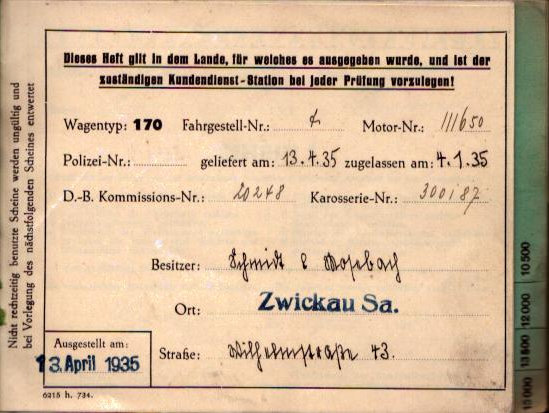 Dieses Heft gilt in dem Lande, für welches es ausgegeben wurde, und ist der
zuständigen Kundendienst-Station bei jeder Prüfung vorzulegen!
Wagentyp: 170 Fahrgestell-Nr.: Motor-Nr.: 111650
Polizei-Nr.: geliefert am: 13.4.35 zugelassen am: 4.1.35
D.-B. Kommissions-Nr.: 20248 Karosserie-Nr.: 300187
Besitzer: Schmidt & Mosebach
Ort: Zwickau Sa.
Straße: Wilhelmstraße 43.
Ausgestellt am:
13. April 1935
6215 h. 734.
Nicht rechtzeitig benutzte Scheine werden ungültig und
bei Vorlegung des nächstfolgenden Scheines entwertet
10500
12000
13500
15000